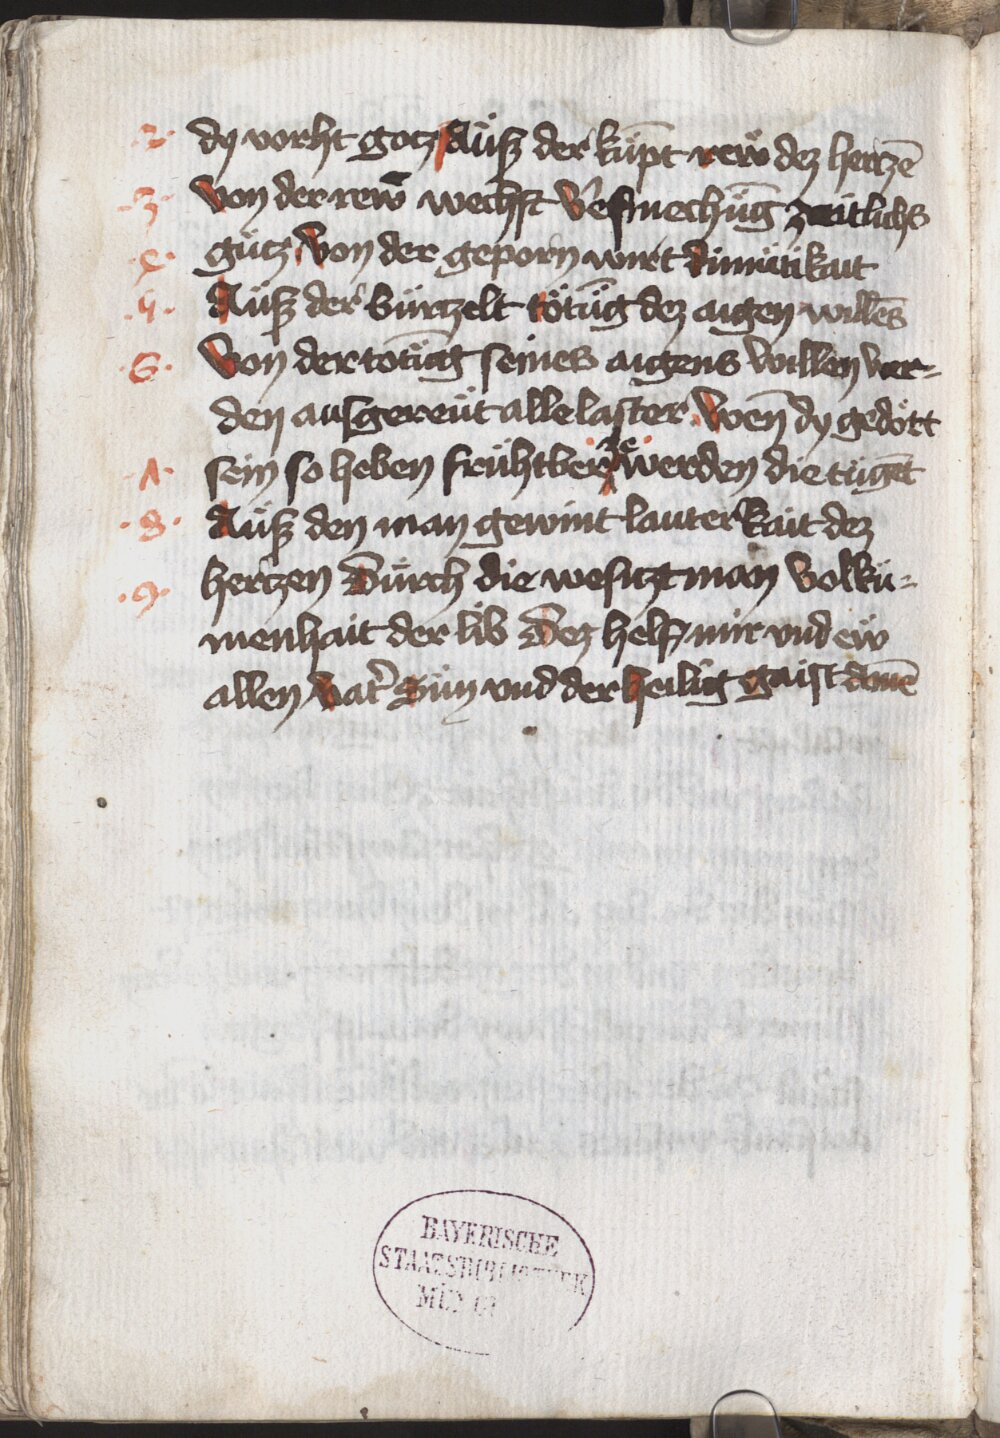 .2. dy vorht gotz Auͤß der kuͤpt rew dez hertzē
.3. Von der rew wechst v̾smechūg zeitlichs
.4. guͤtz Von der geporn wirt dimuͤtikait
.5. Auß der buͤrtzelt toͤtūg dez aigen willēs
.6. Von der totūg seines aigens willen wer-
den ausgereuͤt alle laster Wen̄ dy gedoͤtt
.7. sein so heben fruͤhtber ze werden die tugēt
.8. Auͤß den man gewint lauterkait dez
.9. hertzen Duͤrch die wesitzt man volkuͤ-
menhait der lib Dez helf mir vnd ew
allen vat̾ suͤn vnd der heilig gaist amē
BAYERISCHE
STAATSBIBLIOTHEK
MÜNCHEN